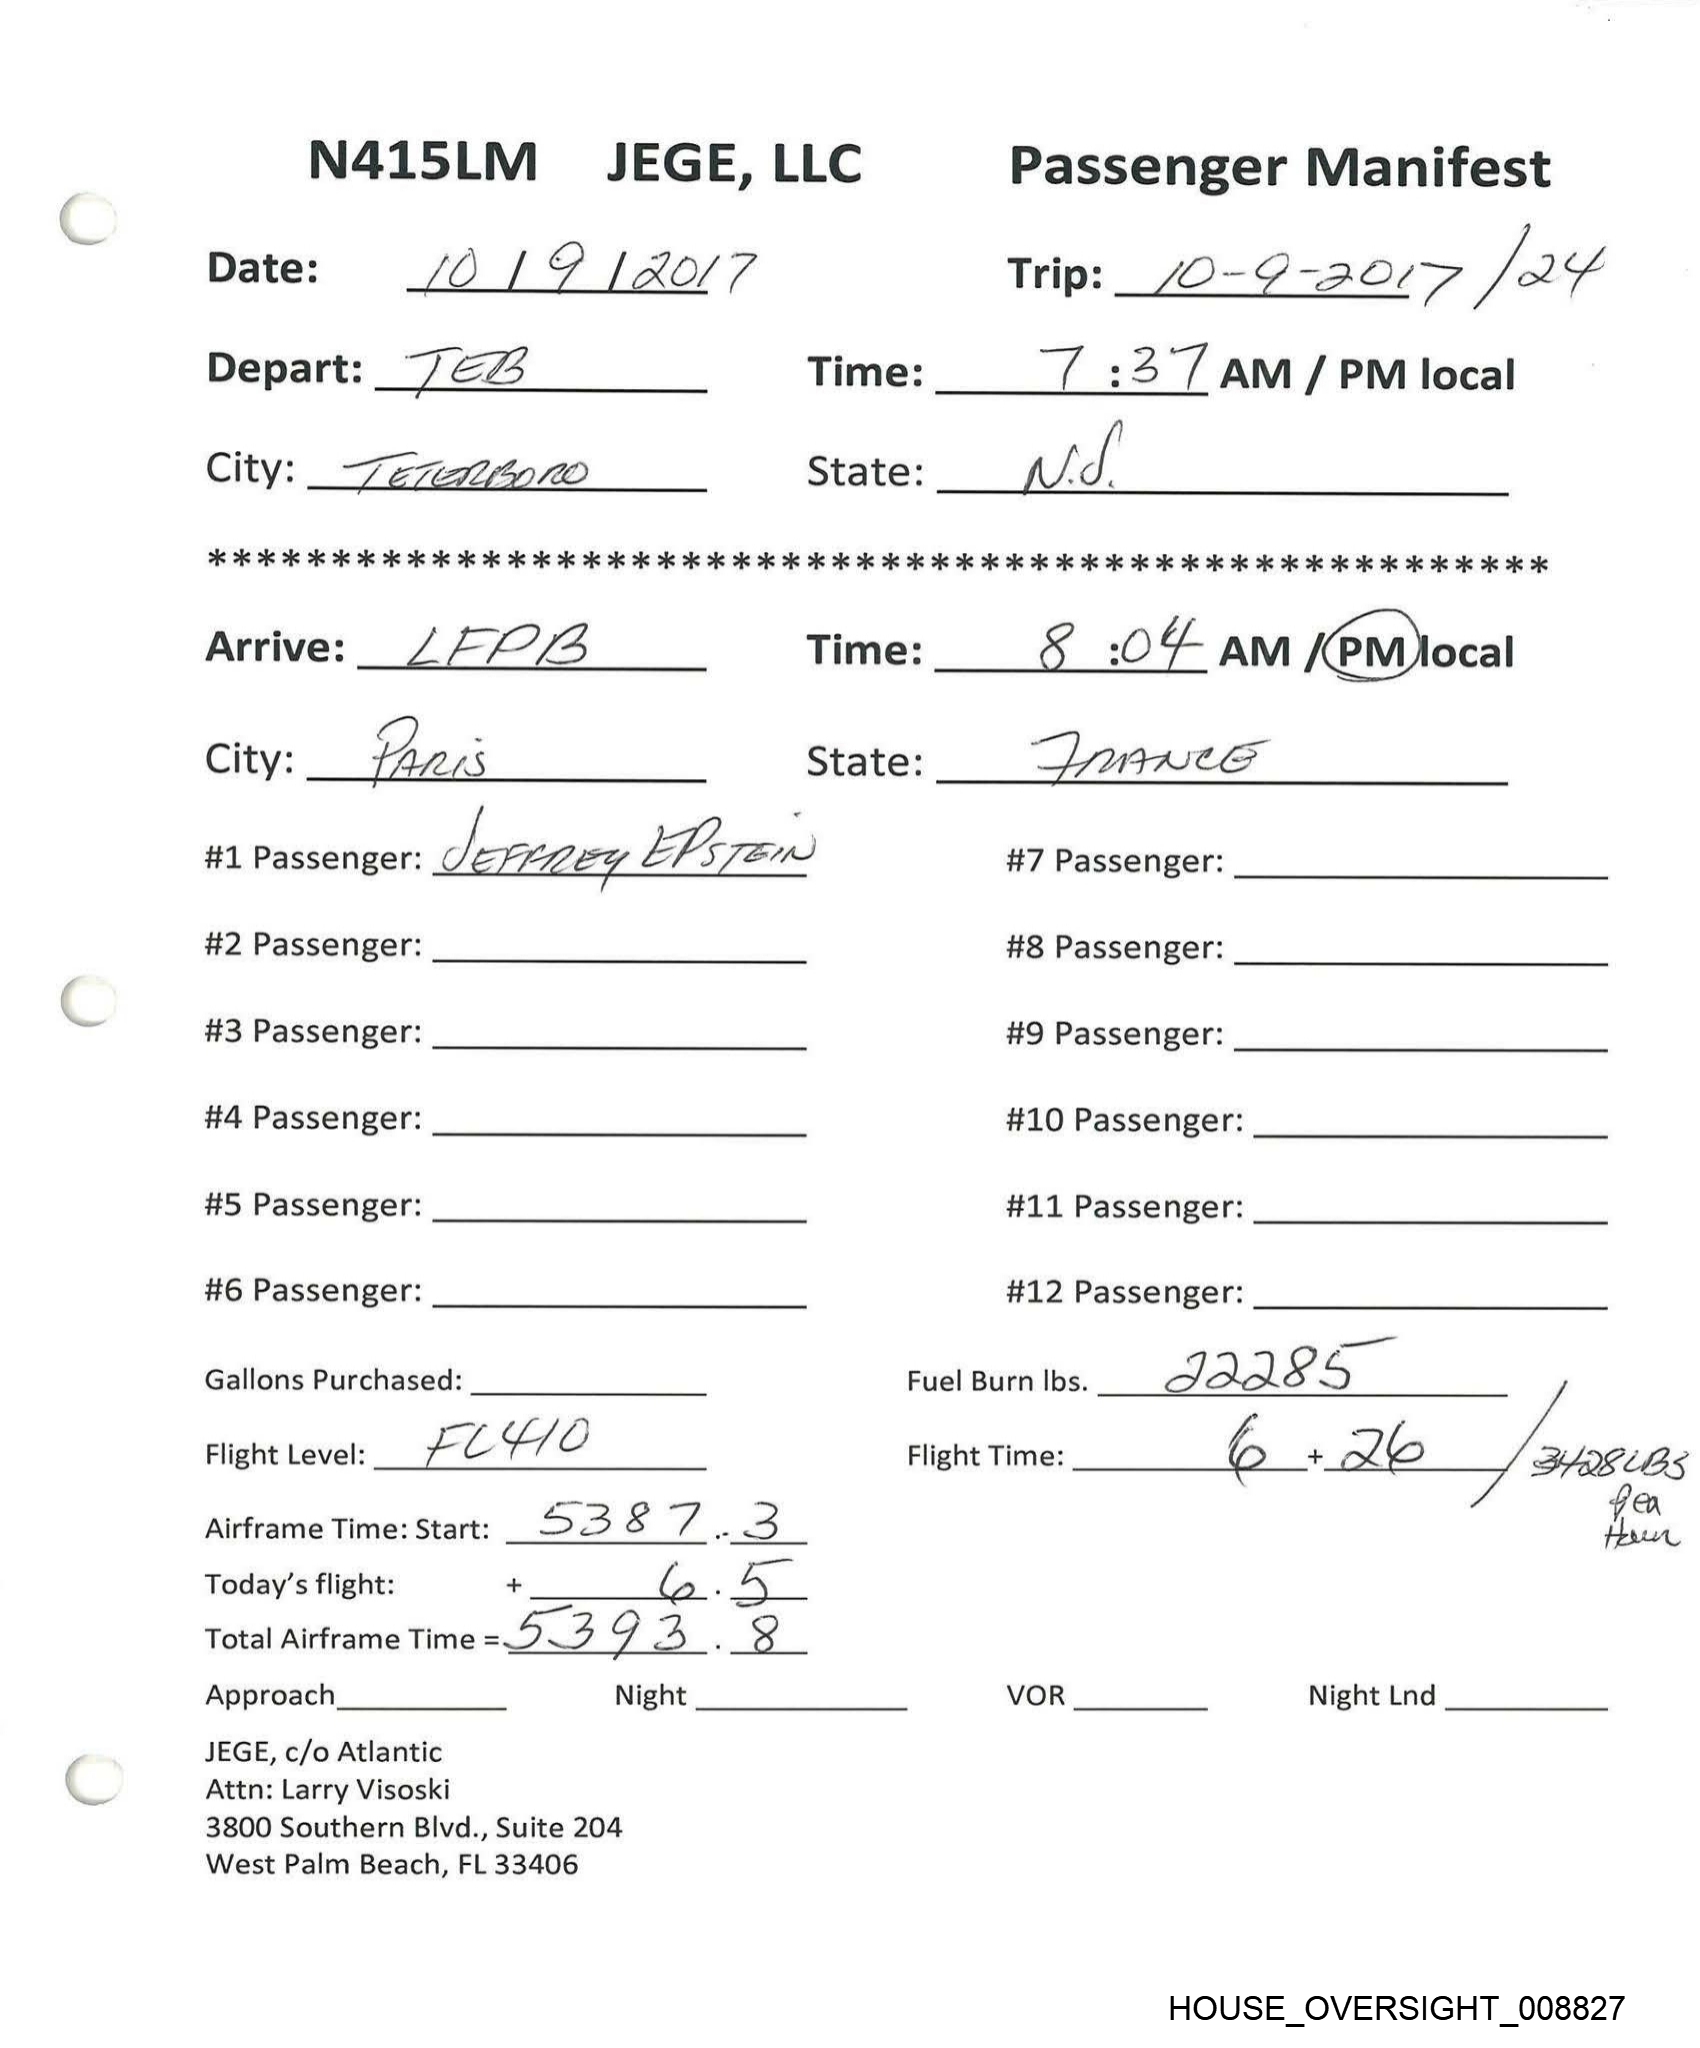 N415LM JEGE, LLC Passenger Manifest
Date: 10 / 9 / 2017 Trip: 10-9-2017 / 24
Depart: TEB Time: 7 : 37 AM / PM local
City: TETERBORO State: N.J.
******************************************************
Arrive: LFPB Time: 8 : 04 AM / PM local
City: PARIS State: FRANCE
#1 Passenger: JEFFREY EPSTEIN #7 Passenger:
#2 Passenger: #8 Passenger:
#3 Passenger: #9 Passenger:
#4 Passenger: #10 Passenger:
#5 Passenger: #11 Passenger:
#6 Passenger: #12 Passenger:
Gallons Purchased: Fuel Burn lbs. 22285
Flight Level: FL410 Flight Time: 6 + 26 / 3428 LBS
per
Hour
Airframe Time: Start: 5387 . 3
Today's flight: + 6 . 5
Total Airframe Time = 5393 . 8
Approach Night VOR Night Lnd
JEGE, c/o Atlantic
Attn: Larry Visoski
3800 Southern Blvd., Suite 204
West Palm Beach, FL 33406
HOUSE_OVERSIGHT_008827